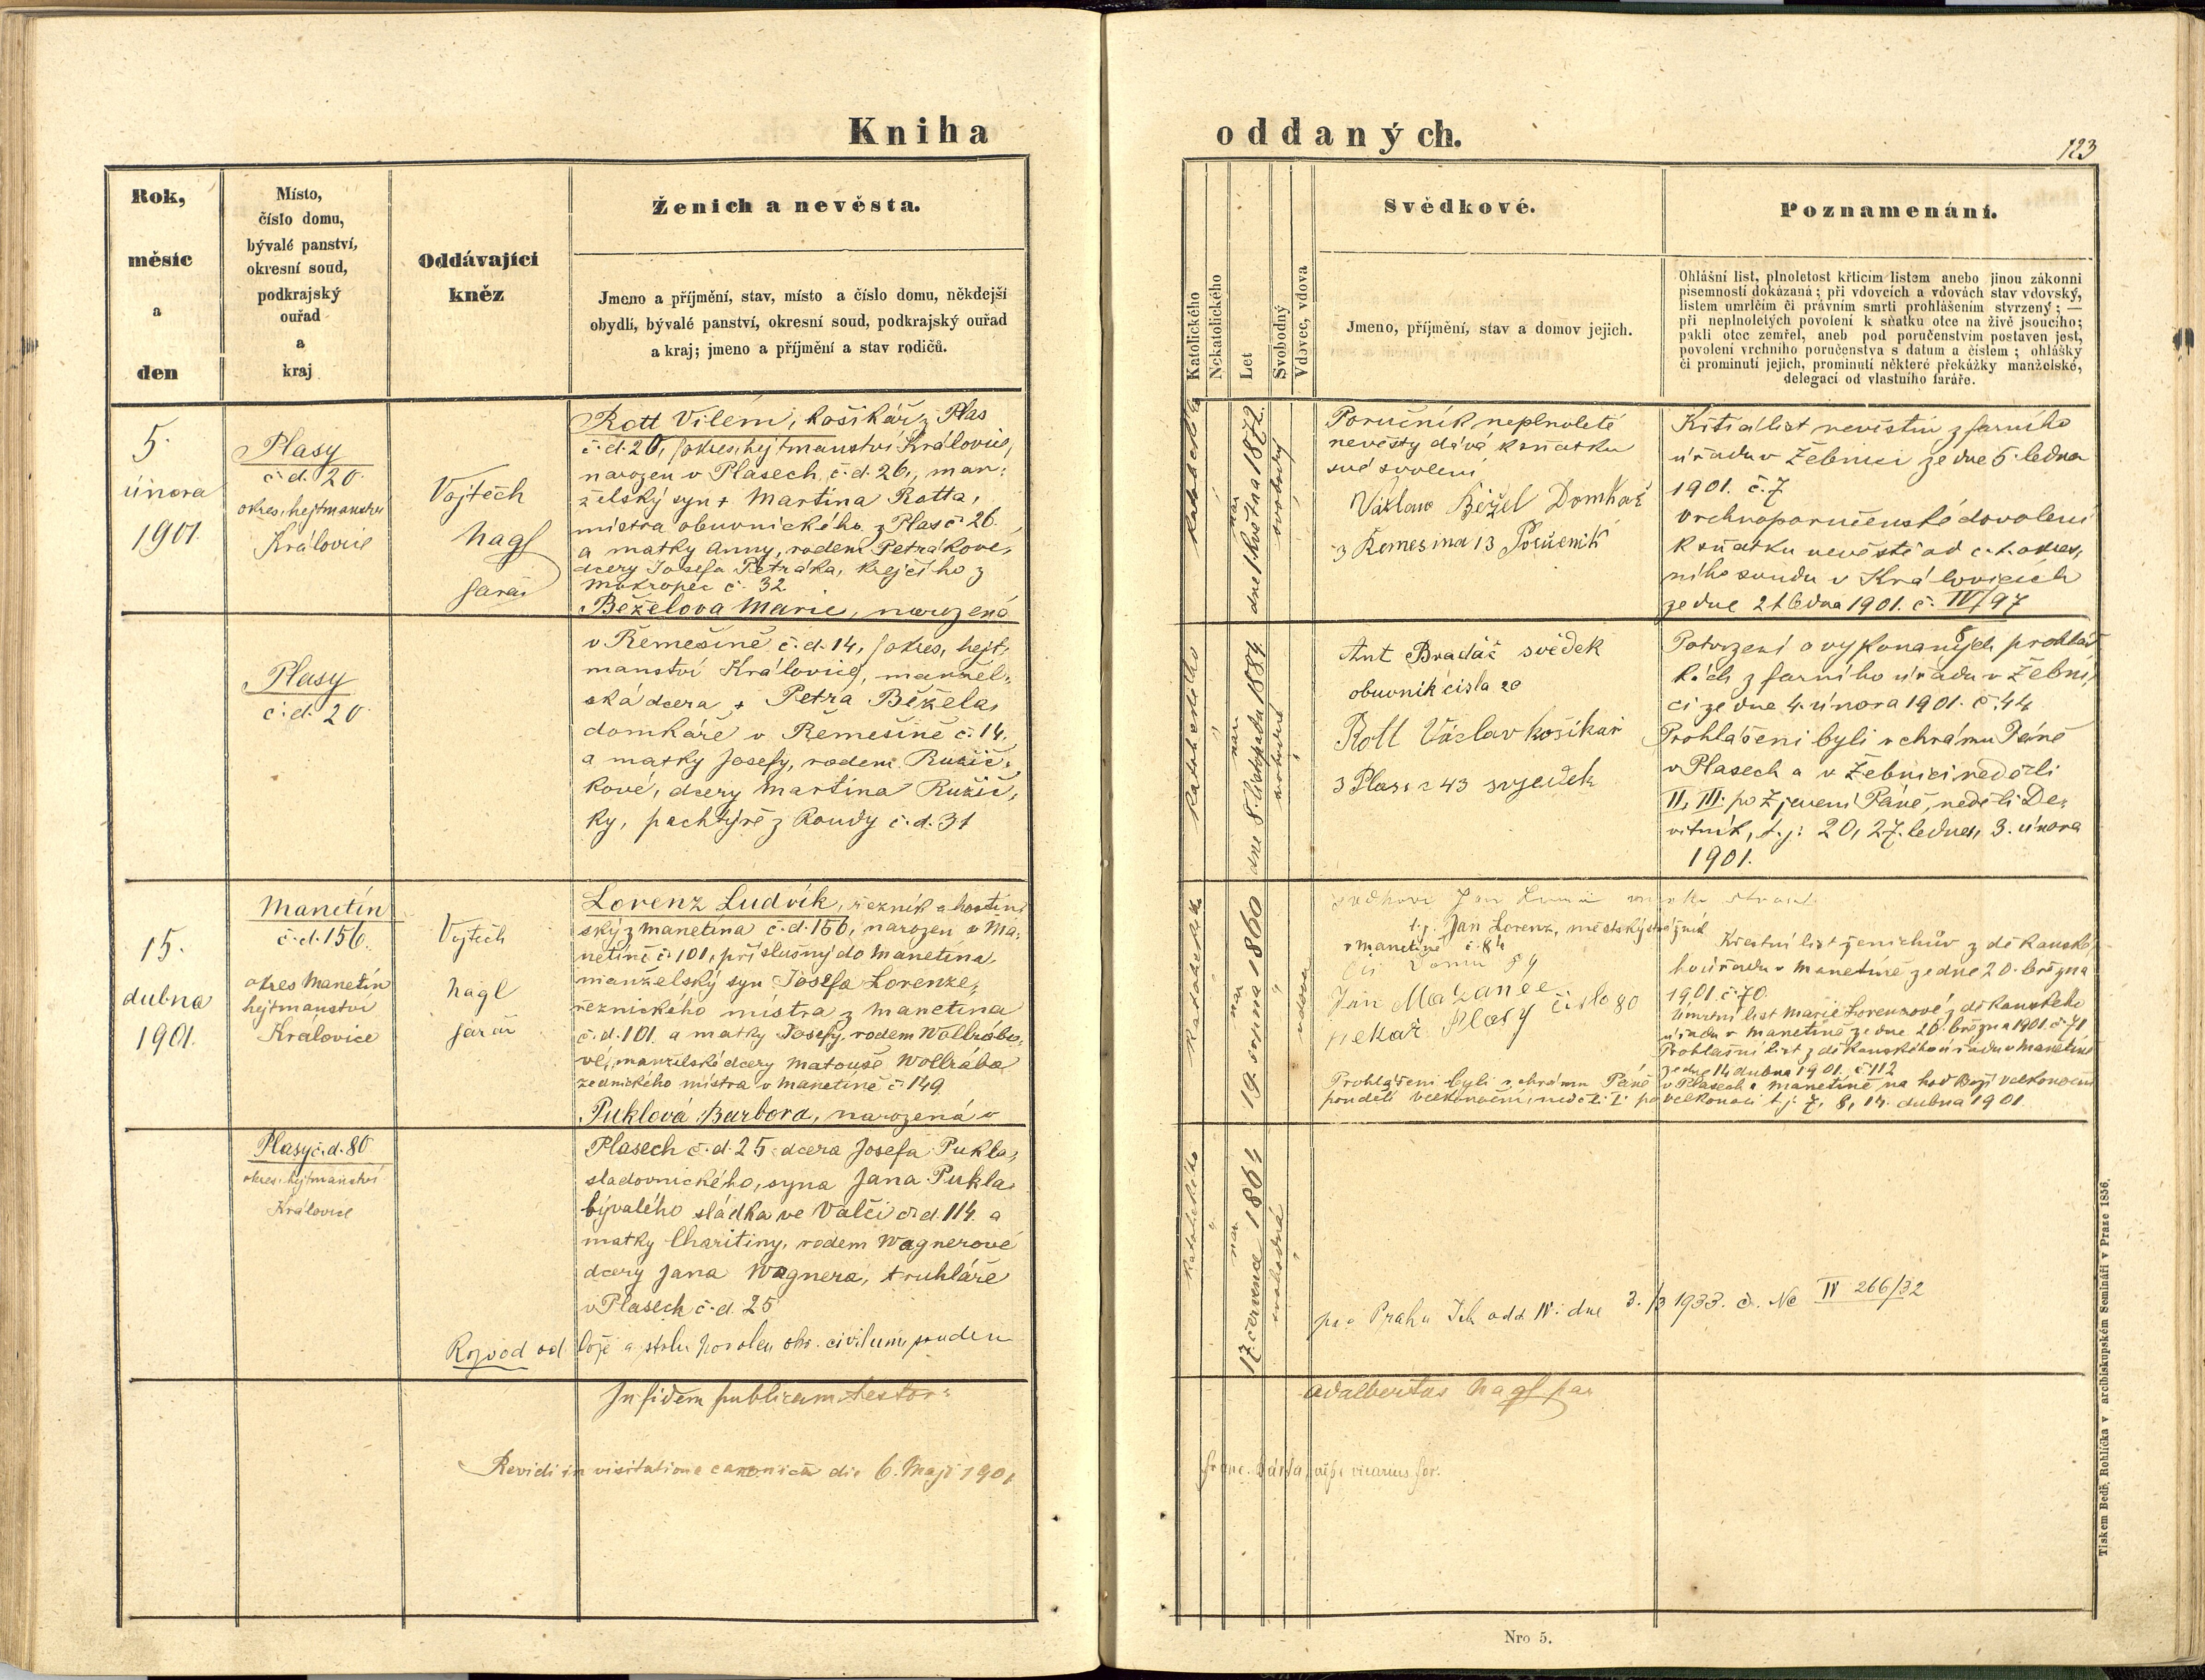 Kniha oddaných.
123
Rok,
měsíc
a
den
Místo,
číslo domu,
bývalé panství,
okresní soud,
podkrajský
ouřad
a
kraj
Oddávající
kněz
Ženich a nevěsta.
Jmeno a příjmění, stav, místo a číslo domu, někdejší
obydlí, bývalé panství, okresní soud, podkrajský ouřad
a kraj; jmeno a příjmění a stav rodičů.
Katolického
Nekatolického
Let
Svobodný
Vdovec, vdova
Svědkové.
Jmeno, příjmění, stav a domov jejich.
Poznamenání.
Ohlášní list, plnoletost křticím listem anebo jinou zákonní
písemností dokázaná; při vdovcích a vdovách stav vdovský,
listem umrlčím či právním smrti prohlášením stvrzený; —
při neplnoletých povolení k sňatku otce na živě jsoucího;
pakli otec zemřel, aneb pod poručenstvím postaven jest,
povolení vrchního poručenstva s datum a číslem; ohlášky
či prominutí jejich, prominutí některé překážky manželské,
delegací od vlastního faráře.
5.
února
1901.
Plasy
č. d. 20
okres. hejtmanství
Královice
Vojtěch
Nagl
farář
Rott Vilém, košikář z Plas
č. d. 20, okres. hejtmanství Královice,
narozen v Plasech č. d. 26., man-
želský syn + Martina Rotta,
mistra obuvnického z Plas č. 26.
a matky Anny, rodem Petrákové,
dcery Josefa Petráka, krejčího z
Mokropec č. 32
Běželova Marie, narozená
katolického
nar.
dne 1. května 1872.
svobodný
Poručník neplnoleté
nevěsty dává k sňatku
své svolení
Václav Běžel Domkář
z Řemešína 13 Poručník
Křticí list nevěstin z farního
úřadu v Žebnici ze dne 5. ledna
1901. č. 7
Vrchnoporučenské dovolení
k sňatku nevěstě od c. k. okres-
ního soudu v Královicích
ze dne 21 ledna 1901. č. IV/97
Plasy
č. d. 20
v Řemešíně č. d. 14, okres. hejt-
manství Královice, manžel-
ská dcera + Petra Běžela,
domkáře v Řemešíně č. 14.
a matky Josefy, rodem Růžič-
kové, dcery Martina Růžič-
ky, pachtýře z Koudy č. d. 31
katolického
nar.
dne 8. listopadu 1884
svobodná
Ant Bradáč svědek
obuvník čísla 20
Rott Václav košikář
z Plas č 43 svjedek
Potvrzení o vykonaných prohláš-
kách z farního úřadu v Žebni-
ci ze dne 4. února 1901. č. 44
Prohlášeni byli v chrámu Páně
v Plasech a v Žebnici neděli
II, III. po Zjevení Páně, neděli De-
vítník, t. j. 20, 27. ledna, 3. února
1901.
15.
dubna
1901.
Manetín
č. d. 156.
okres Manetín
hejtmanství
Královice
Vojtěch
Nagl
farář
Lorenz Ludvík, řezník a hostin-
ský z Manetína č. d. 156, narozen v Ma-
netíně č. 101, příslušný do Manetína,
manželský syn Josefa Lorenze,
řeznického mistra z Manetína
č. d. 101. a matky Josefy, rodem Wollrábo-
vé, manželské dcery Matouše Wollrába
zednického mistra v Manetíně č. 149.
Puklová Barbora, narozená v
katolického
nar.
19. srpna 1860
vdovec
t. j. Jan Lorenz, městský strážník
v Manetíně č. 84
Jan Mazanec
pekař Plasy číslo 80
Křestní list ženichův z děkanské-
ho úřadu v Manetíně ze dne 20. března
1901. č. 70.
Úmrtní list Marie Lorenzové z děkanského
úřadu v Manetíně ze dne 20. března 1901. č. 71
Prohlašní list z děkanského úřadu v Manetíně
ze dne 14 dubna 1901. č. 112
Prohlášeni byli v chrámu Páně v Plasech a Manetíně na hod Boží velkonoční
pondělí velkonoční, neděli I. po velkonoci t. j. 7, 8, 14. dubna 1901.
Plasy č. d. 80
okres. hejtmanství
Královice
Plasech č. d. 25. dcera Josefa Pukla,
sladovnického, syna Jana Pukla
bývalého sládka ve Valči č. d. 114. a
matky Charitiny, rodem Wagnerové
dcery Jana Wagnera, truhláře
v Plasech č. d. 25
katolického
nar.
17. července 1864
svobodná
Rozvod od lože a stolu povolen okr. civilním soudem
pro Prahu odd. IV. dne 3./3 1933. č. Nc IV 266/32
In fidem publicam testor:
Adalbertus Nagl par
Revidi in visitatione canonica die 6. Maji 1901
vicarius for.
Nro 5.
Tiskem Bedř. Rohlíčka v arcibiskupském Semináři v Praze 1856.